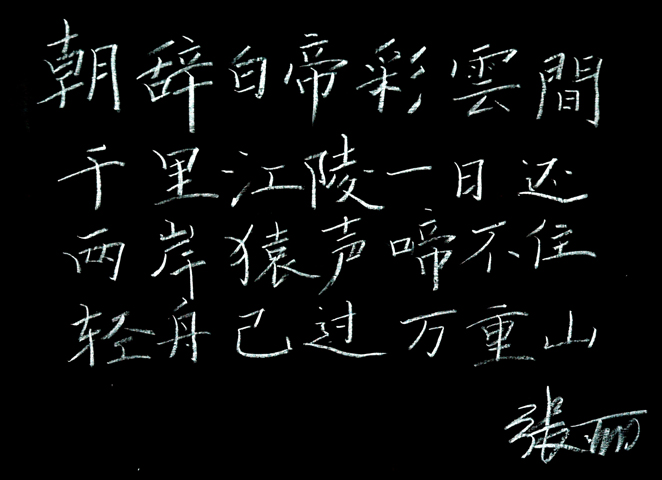 朝辞白帝彩雲間
千里江陵一日还
两岸猿声啼不住
轻舟已过万重山
张丽